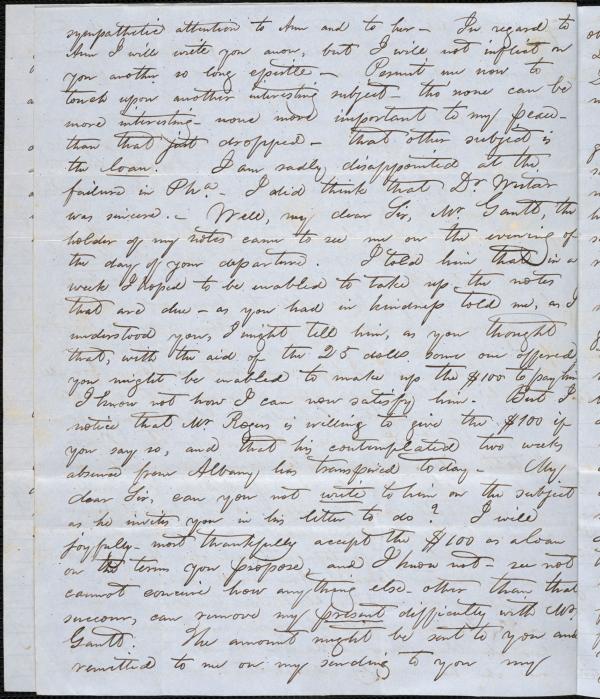 sympathetic attention to Ann and to her – In regard to
Ann I will write you anon, but I will not inflict on
you another so long epistle – Permit me now to
touch upon another interesting subject – tho none can be
more interesting – none more important to my peace –
than that just dropped – that other subject is
the loan. I am sadly disappointed at the
failure in Pha. – I did think that Dr Wistar
was sincere. – Well, my dear Sir, Mr Gantt, the
holder of my notes came to see me on the evening of
the day of your departure. I told him that in a
week I hoped to be enabled to take up the notes
that are due – as you had in kindness told me, as I
understood you, I might tell him, as you thought
that, with the aid of the 25 dolls some one offered,
you might be enabled to make up the $100 to pay him
I know not how I can now satisfy him – But I
notice that Mr Rogers is willing to give the $100 if
you say so, and that his contemplated two weeks
absence from Albany has transpired today – My
dear Sir, can you not write to him on the subject
as he invites you in his letter to do? I will
joyfully – most thankfully accept the $100 as a loan
on the terms you propose, and I know not – see not
cannot conceive how anything else – other than that
succour, can remove my present difficulty with Mr.
Gantt. The amount might be sent to you and
remitted to me on my sending to you my